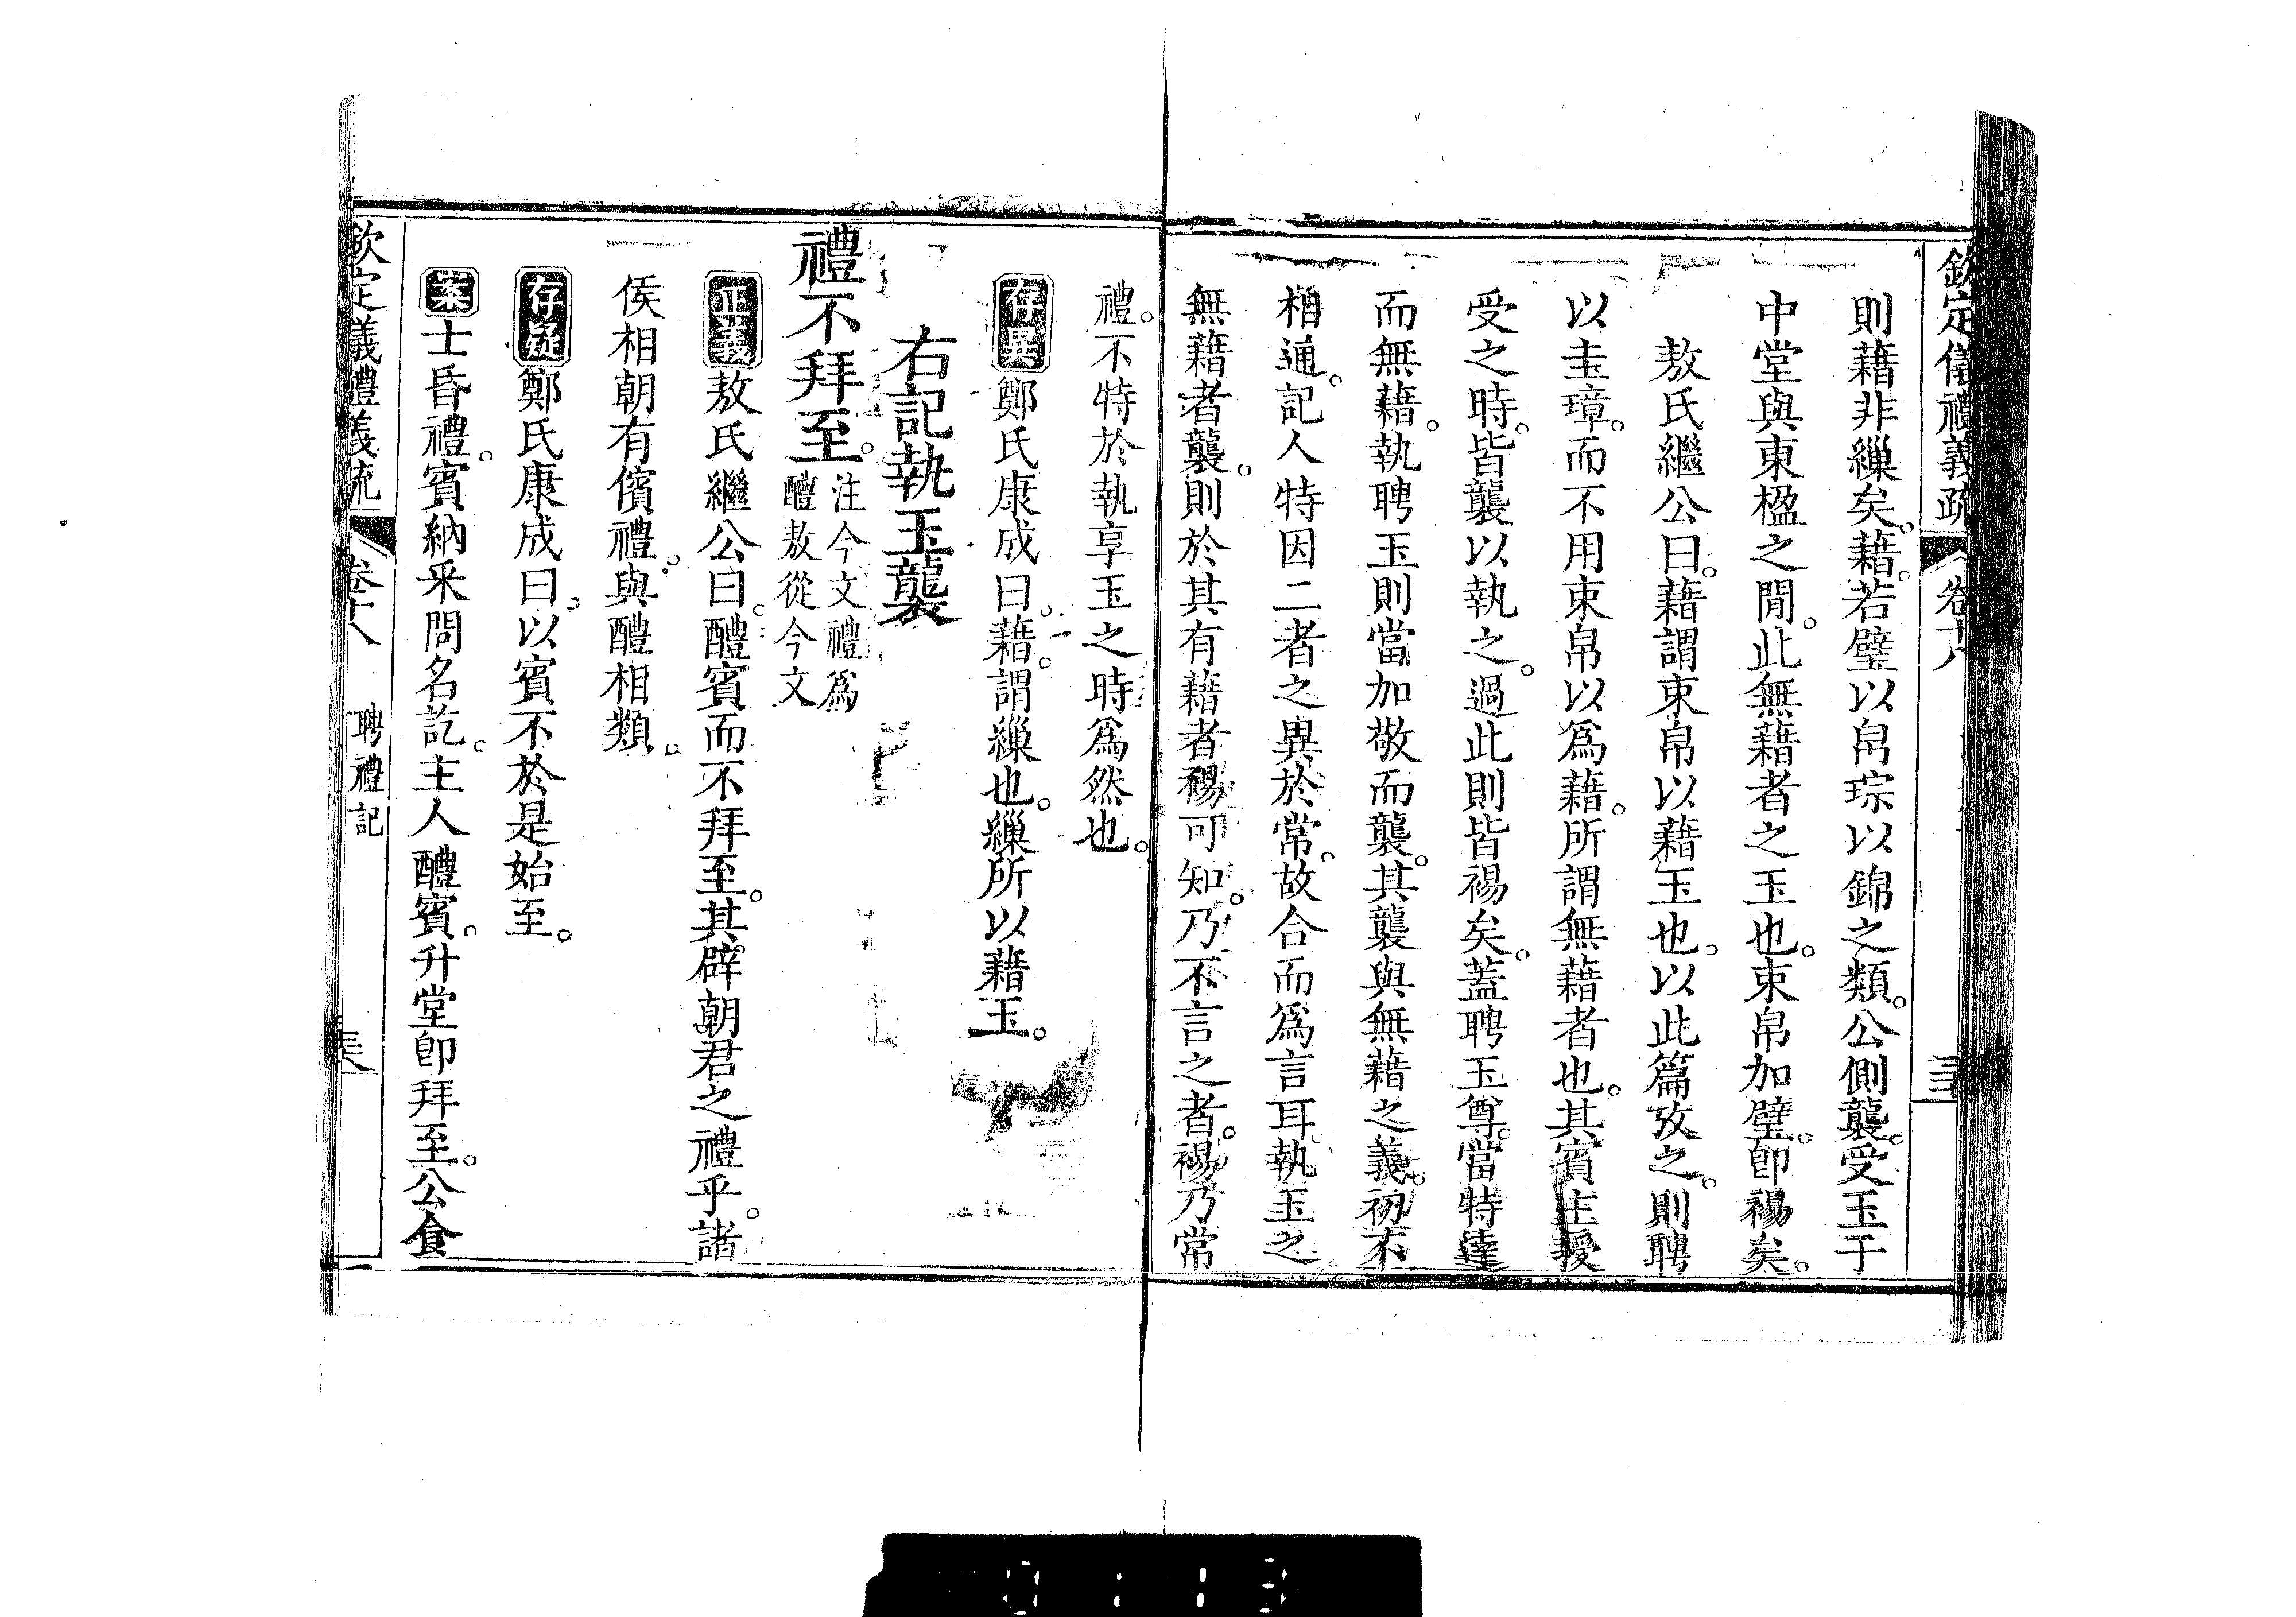 欽定儀禮義疏 卷十八
則藉非繅矣。藉。若璧以帛琮以錦之類。公側襲。受玉于
中堂與東楹之閒。此無藉者之玉也。束帛加璧。卽裼矣。
敖氏繼公曰。藉謂束帛以藉玉也。以此篇攷之。則聘
以圭璋。而不用束帛以爲藉。所謂無藉者也。其賓主授
受之時。皆襲以執之。過此則皆裼矣。蓋聘玉尊。當特達
而無藉。執聘玉則當加敬而襲。其襲與無藉之義。初不
相通。記人特因二者之異於常。故合而爲言耳。執玉之
無藉者襲。則於其有藉者裼可知。乃不言之者。裼乃常
禮。不特於執享玉之時爲然也。
存異鄭氏康成曰。藉。謂繅也。繅所以藉玉。
右記執玉襲
禮不拜至。注今文禮爲
醴敖從今文
正義敖氏繼公曰。醴賓而不拜至。其辟朝君之禮乎。諸
侯相朝有儐禮。與醴相類。
存疑鄭氏康成曰。以賓不於是始至。
案士昏禮。賓納采問名訖。主人醴賓。升堂卽拜至。公食
欽定儀禮義疏 卷十八 聘禮記
0113